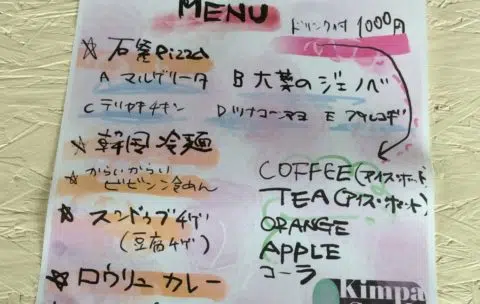 MENU
ドリンク付 1000円
☆ 石窯Pizza
A マルゲリータ B 大葉のジェノベ
C テリヤキチキン D ツナコーンマヨ E
☆ 韓国冷麺
からいからい
ビビン冷めん
☆ スンドゥブチゲ
(豆腐チゲ)
☆ ロウリュ カレー
COFFEE(アイス・ホット)
TEA(アイス・ホット)
ORANGE
APPLE
コーラ
Kimpa